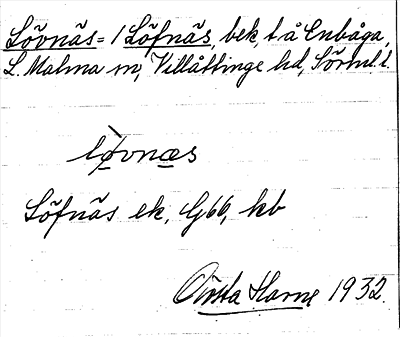 Lövnäs = / Löfnäs, bek, t å Enbåga,
L. Malma sn, Villåttinge hd, Sörml. l.
lòvnæs
Löfnäs ek, G66, kb
Gösta Harne 1932.